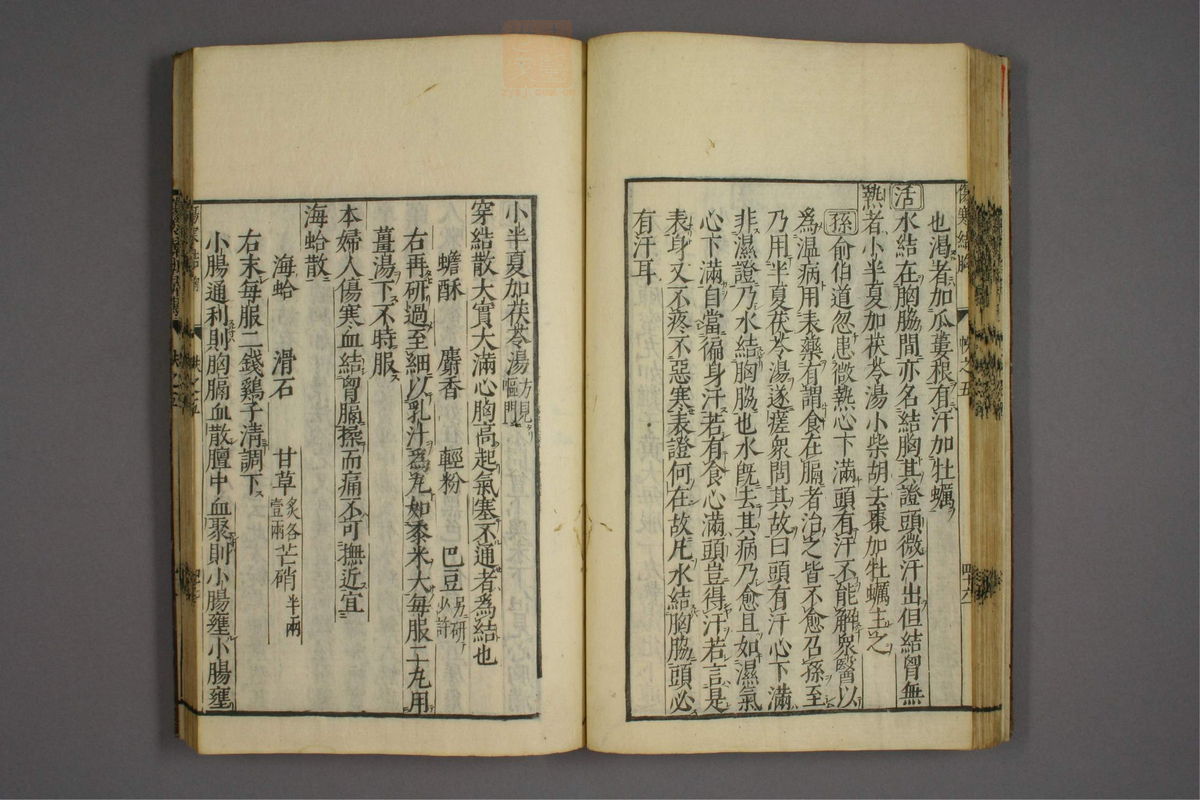 也渴者加瓜蔞根有汗加牡蠣
活水結在胸脇間亦名結胸其證頭微汗出但結胷無
熱者小半夏加茯苓湯小柴胡去棗加牡蠣主之
孫俞伯道忽患微熱心下滿頭有汗不能解衆醫以
爲温病用表藥有謂食在膈者治之皆不愈召孫至
乃用半夏茯苓湯遂瘥衆問其故曰頭有汗心下滿
非濕證乃水結胸脇也水既去其病乃愈且如濕氣
心下滿自當徧身汗若有食心滿頭豈得汗若言是
表身又不疼不惡寒表證何在故凡水結胸脇頭必
有汗耳
小半夏加茯苓湯方見嘔門
穿結散大實大滿心胸高起氣塞不通者爲結也
蟾酥 麝香 輕粉 巴豆另研少許
右再研過至細以乳汁爲丸如黍米大每服二丸用
薑湯下不時服
本婦人傷寒血結胷膈揉而痛不可撫近宜
海蛤散
海蛤 滑石 甘草炙各壹兩 芒硝半兩
右末每服二錢鷄子清調下
小腸通利則胸膈血散膻中血聚則小腸壅小腸壅